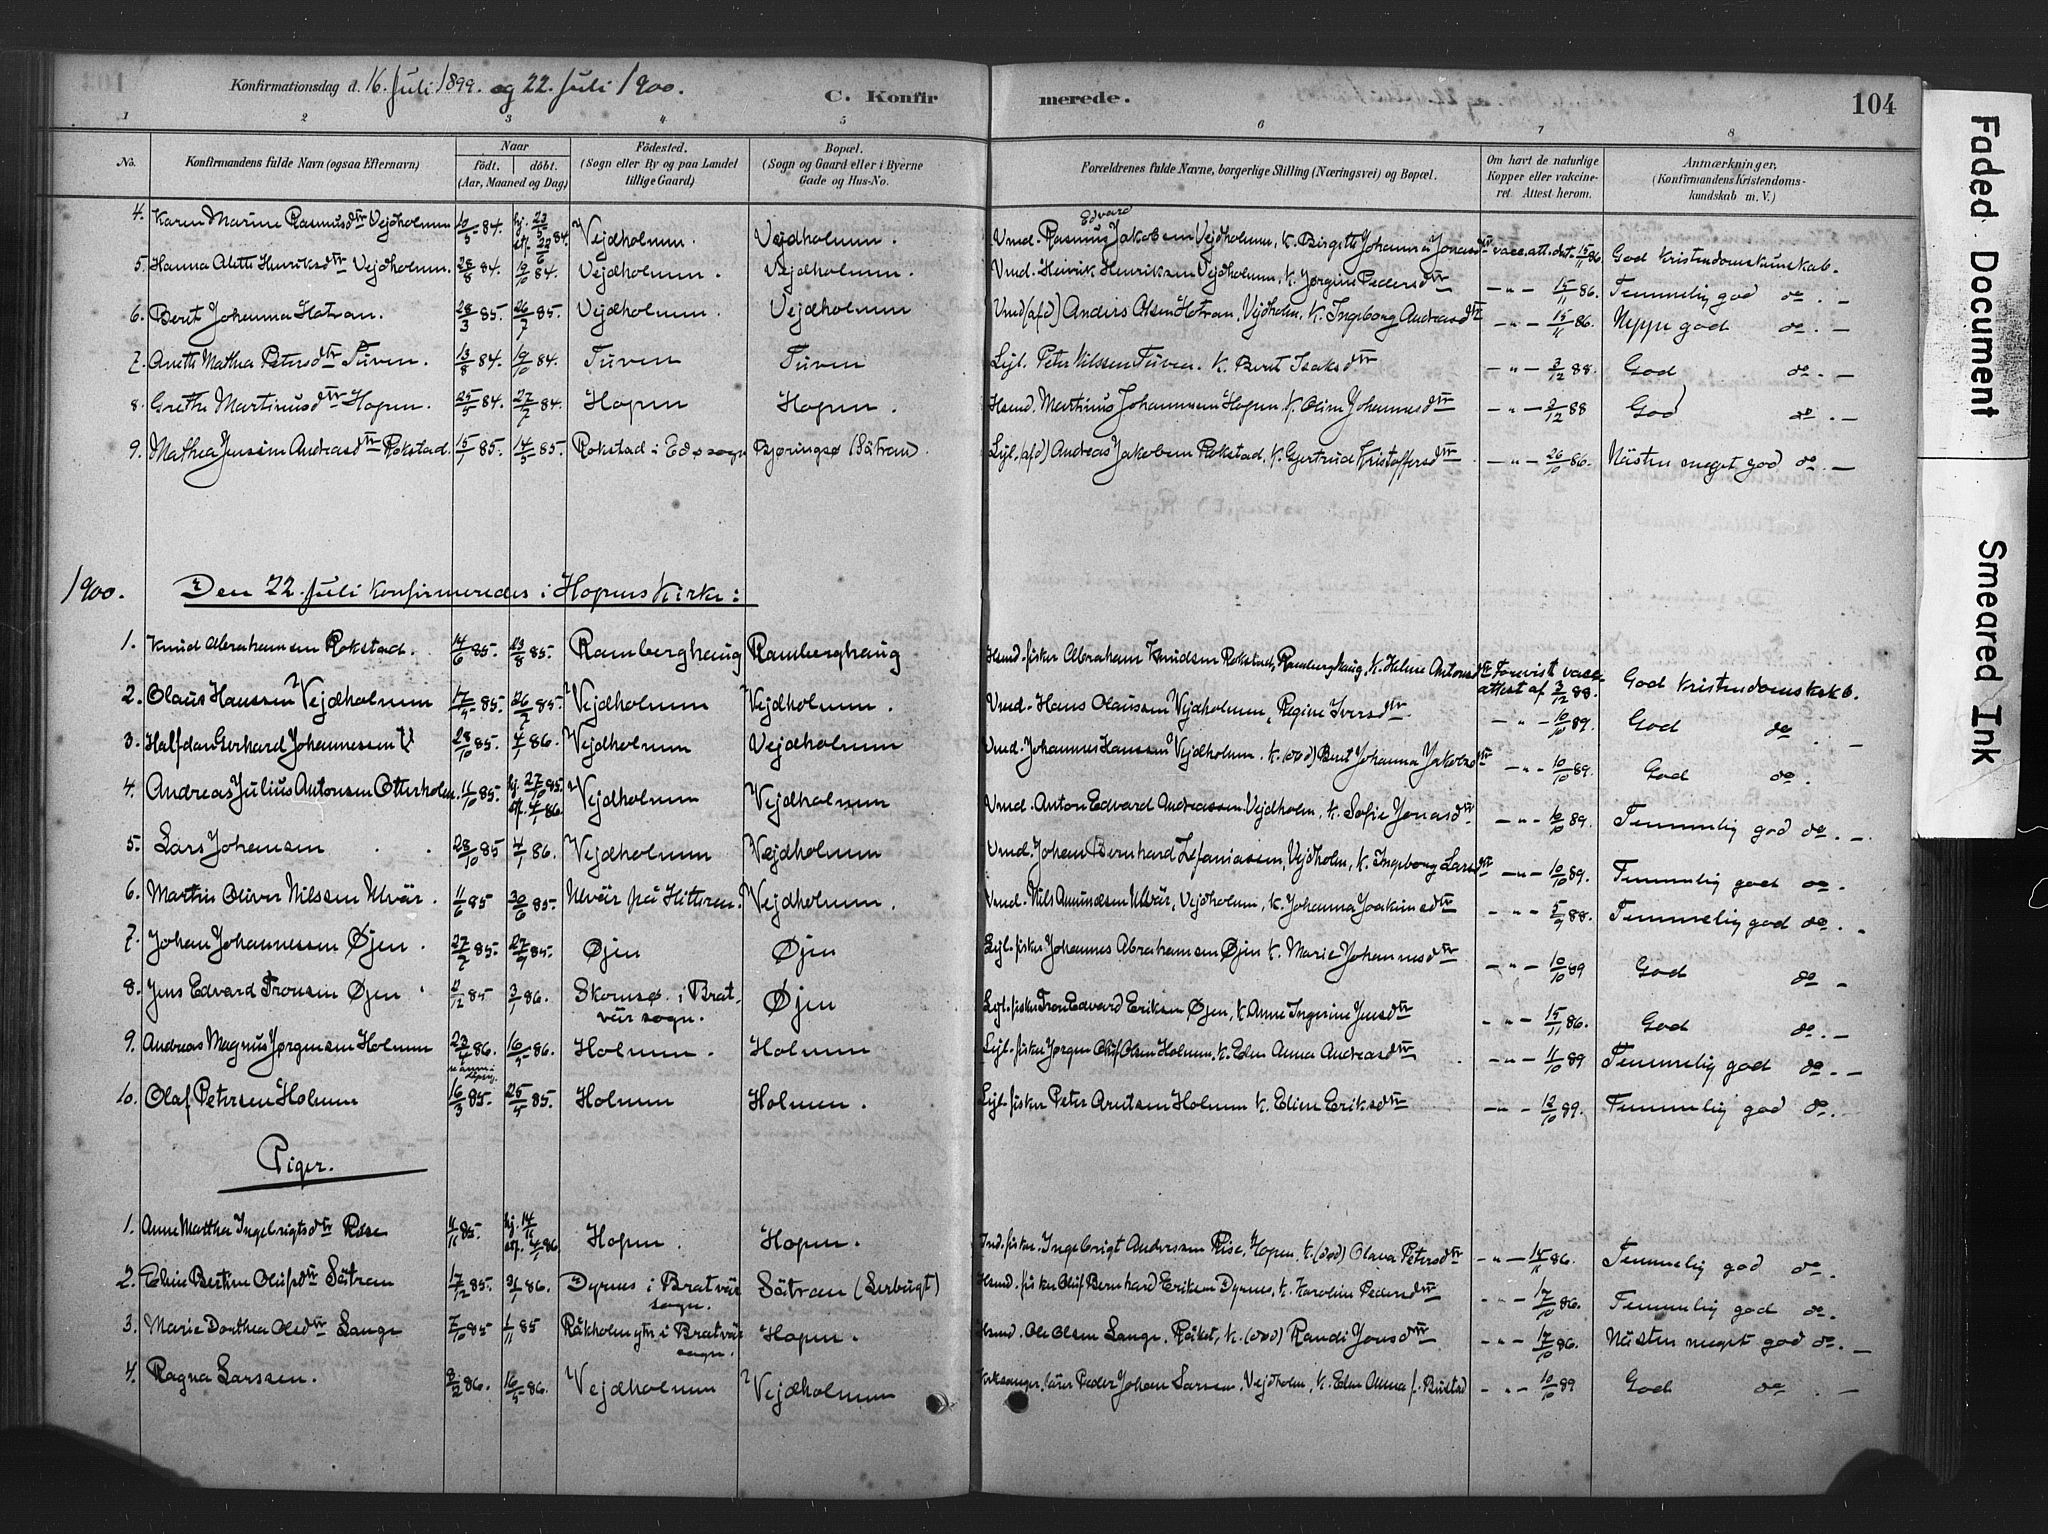 Konfirmationsdag d. 16. Juli 1899. og 22. Juli 1900.
C. Konfirmerede.
104
1 2 3 4 5 6 7 8
No. Konfirmandens fulde Navn (ogsaa Efternavn)
Naar
født. døbt.
(Aar, Maaned og Dag)
Fødested.
(Sogn eller By og paa Landet
tillige Gaard)
Bopæl.
(Sogn og Gaard eller i Byerne
Gade og Hus-No.
Forældrenes fulde Navne, borgerlige Stilling (Næringsvei) og Bopæl.
Om havt de naturlige
Kopper eller vakcine-
ret. Attest herom.
Anmærkninger,
(Konfirmandens Kristendoms-
kundskab m. V.)
4. Karen Marine Rasmusdtr Vejdholmen 10/5 84. hj. 23/5 stf. 22/6 84. Vejdholmen. Vejdholmen. Vmd. Rasmus Edvard Jakobsen Vejdholmen, K. Birgitte Johanna Jonasdtr vacc. att. dat. 15/11 86. God Kristendomskundskab.
5. Hanna Aletta Henriksdtr Vejdholmen. 28/8 84. 19/10 84. Vejdholmen. Vejdholmen. Vmd. Henrik Henriksen Vejdholmen, K. Jørgine Pedersdtr — " — 15/11 86. Temmelig god do. —
6. Berit Johanna Hotran. 28/3 85. 26/7 85. Vejdholmen. Vejdholmen Vmd (afd) Anders Olsen Hotran, Vejdholm, K. Ingeborg Andreasdtr — " — 15/11 86. Neppe god do. —
7. Aneth Mathea Petersdtr Tuven. 13/8 84. 19/10 84. Tuven Tuven Lejl. Peter Nilssen Tuven. K. Berit Isaksdtr — " — 2/12 88. God do. —
8. Grethe Martinusdtr Hopen. 25/5 84. 27/7 84. Hopen Hopen. Hsmd. Martinus Johannesen Hopen, K. Oline Johannesdtr — " — 2/12 88 God do. —
9. Mathea Jensine Andreasdtr Rokstad. 15/1 85. 14/5 85. Rokstad i Edø sogn Bjøringsø (Sätran). Lejl. (afd) Andreas Jakobsen Rokstad, K. Gjertrud Kristoffersdtr — " — 26/10 86. Nästen meget god do. —
1900. Den 22. Juli Konfirmeredes i Hopens Kirke:
1. Knud Abrahamsen Rokstad. 14/6 85. 23/8 85. Ramberghaug Ramberghaug Hsmd. fisker Abraham Knudsen Rokstad, Ramberghaug, K. Heline Antonsdtr Forevist vacc. attest af 3/12 88. God Kristendomskskb.
2. Olaus Hanssen Vejdholmen 17/5 85. 26/7 85. Vejdholmen Vejdholmen. Vmd. Hans Olaussen Vejdholmen, Regine Iversdtr. — " — 10/10 89. God do —
3. Halfdan Gerhard Johannessen V. 28/10 85. 4/1 86. Vejdholmen Vejdholmen Vmd. Johannes Hanssen Vejdholmen. K. (død) Berit Johanna Jakobsdtr — " — 10/10 89. God do.
4. Andreas Julius Antonsen Otterholm. 11/10 85. hj. 27/10 85. stf. 4/1 86. Vejdholmen Vejdholmen Vmd. Anton Edvard Andreassen Vejdholm, K. Sofie Jonasdtr — " — 10/10 89. Temmelig god do. —
5. Lars Johansen 28/10 85 4/1 86. Vejdholmen Vejdholmen Vmd. Johan Bernhard Zefaniasen, Vejdholm, K. Ingeborg Larsdtr — " — 10/10 89. Temmelig god do.
6. Martin Oliver Nilssen Ulvär. 11/6 85 30/6 85. Ulvär på Hitteren. Vejdholmen. Vmd. Nils Amundsen Ulvär, Vejdholmen, K. Johanna Joakimsdtr — " — 5/9 88. Temmelig god do. —
7. Johan Johannessen Øjen. 27/7 85. 27/9 85. Øjen Øjen Lejl. fisker Johannes Abrahamsen Øjen K. Marie Johannesdtr — " — 10/10 89 God do —
8. Jens Edvard Tronsen Øjen 2/12 85 3/1 86. Skomsø. i Brat-
vär sogn. Øjen Lejl. fisker Tron Edvard Eriksen Øjen, K. Anne Ingerine Jensdtr — " — 15/11 86. God do. —
9. Andreas Magnus Jørgensen Holmen 23/4 86. 16/5 86. Holmen. Holmen Lejl. fisker Jørgen Oluf Olsen Holmen, K. Eden Anna Andreasdtr — " — 11/10 89 Temmelig god do. —
10. Olaf Petersen Holmen 16/3 85. 25/5 85. Holmen Holmen. Lejl. fisker Peter Arntsen Holmen K. Eline Eriksdtr — " — 12/10 89. Temmelig god do. —
Piger.
1. Anne Martha Ingebrigtsdtr Rise 4/11 85. hj. 14/11 stf. 4/1 86. Hopen. Hopen. Ind. fisker. Ingebrigt Anderssen Rise, Hopen, K. (død) Olava Petersdtr — " — 15/11 86. Temmelig god do.
2. Eline Bertine Olufsdtr Sätran 17/12 85. 3/1 86. Dyrnes i Bratvär
sogn. Sätran (Serbugt) Hsmd. fisker Oluf Bernhard Eriksen Dyrnes, K. Karoline Pedersdtr — " — 17/10 86. Temmelig god do.
3. Marie Dorthea Olsdtr Lange 7/10 85 1/11 85 Räkholmytr. i Bratvär
sogn. Hopen. Hsmd. Ole Olsen Lange. Räket, K. (død) Randi Jonsdtr — " — 17/10 86. Nästen meget god do. —
4. Ragna Larssen. 8/2 86. 16/5 86. Vejdholmen Vejdholmen Kirkesanger, lärer Peder Johan Larsen, Vejdholm, K. Eden Anna f. Bustad — " — 10/10 89 God do. —
Faded Document
Smeared Ink